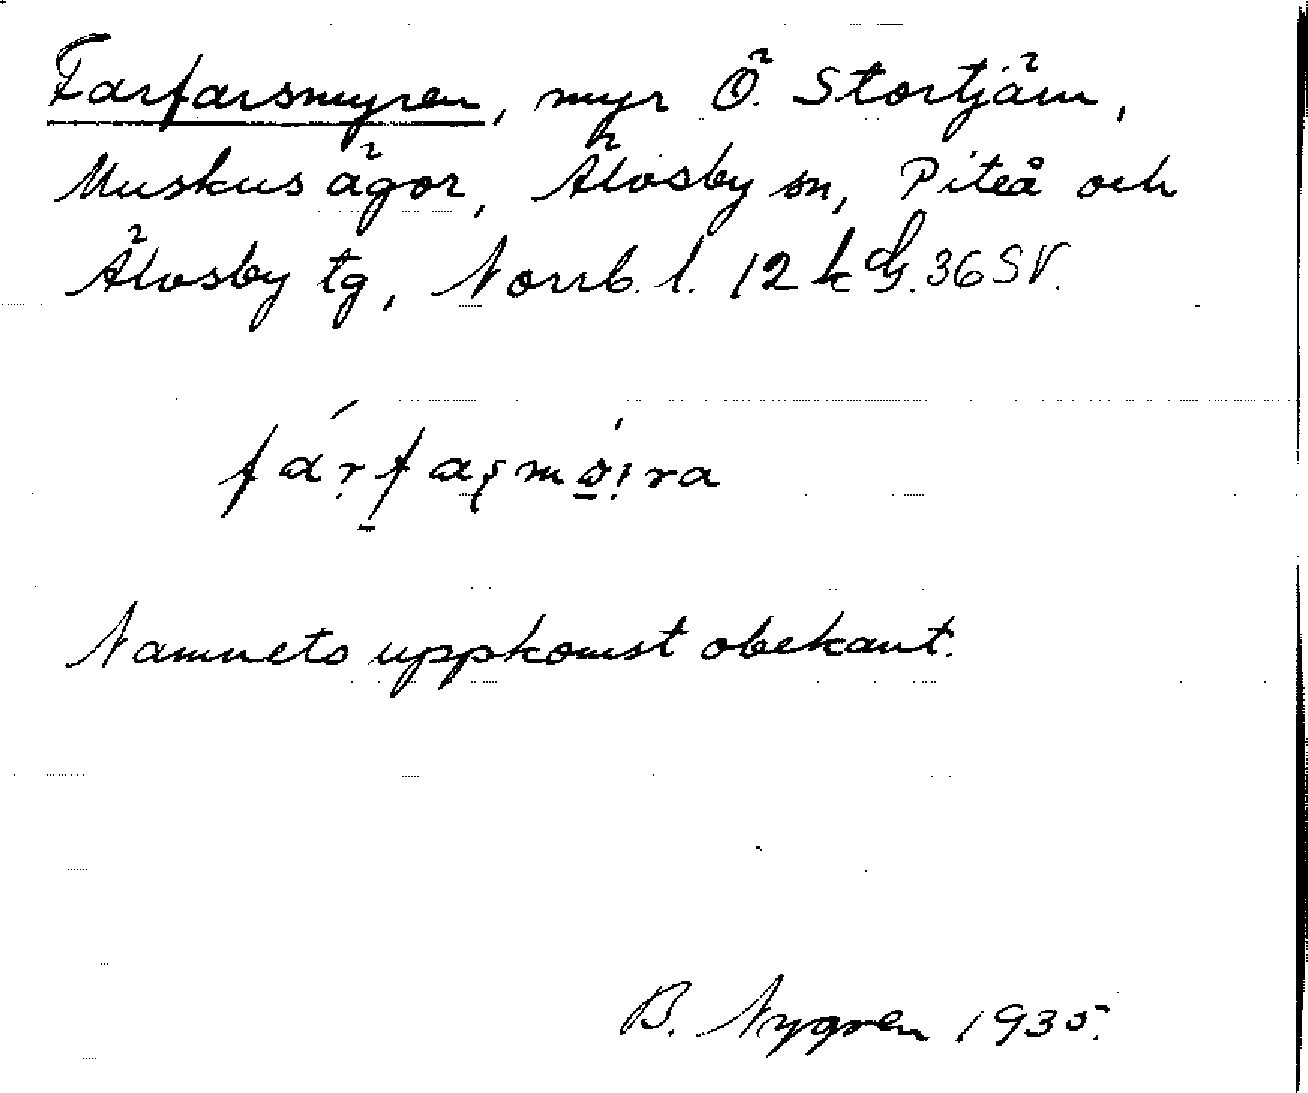 Farfarsmyren, myr Ö. Stortjärn,
Muskus ägor, Älvsby sn, Piteå och
Älvsby tg, Norrb. l. 12 k dG. 36 SV.
Namnets uppkomst obekant.
B. Nygren 1935.